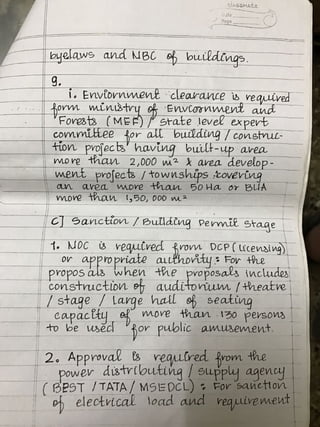 classmate
Date
Page
byelaws and NBC of buildings.
g.
i. Enviornment clearance is required
form ministry of Envoornment and
Forests (MEF) / state level expert
committee for all building / construc-
tion projects having built-up area
more than 2,000 m² & area develop-
ment projects / townships covering
an area more than 50 Ha or BUA
more than 1,50,000 m²
C] Sanction / Building Permit Stage
1. NOC is required from DCP (licensing)
or appropriate authority : For the
proposals when the proposals includes
construction of auditorium / theatre
/ stage / large hall of seating
capacity of more than 130 persons
to be used for public amusement.
2. Approval is required from the
power distributing / supply agency
(BEST / TATA / MSEDCL) : For sanction
of electrical load and requirement